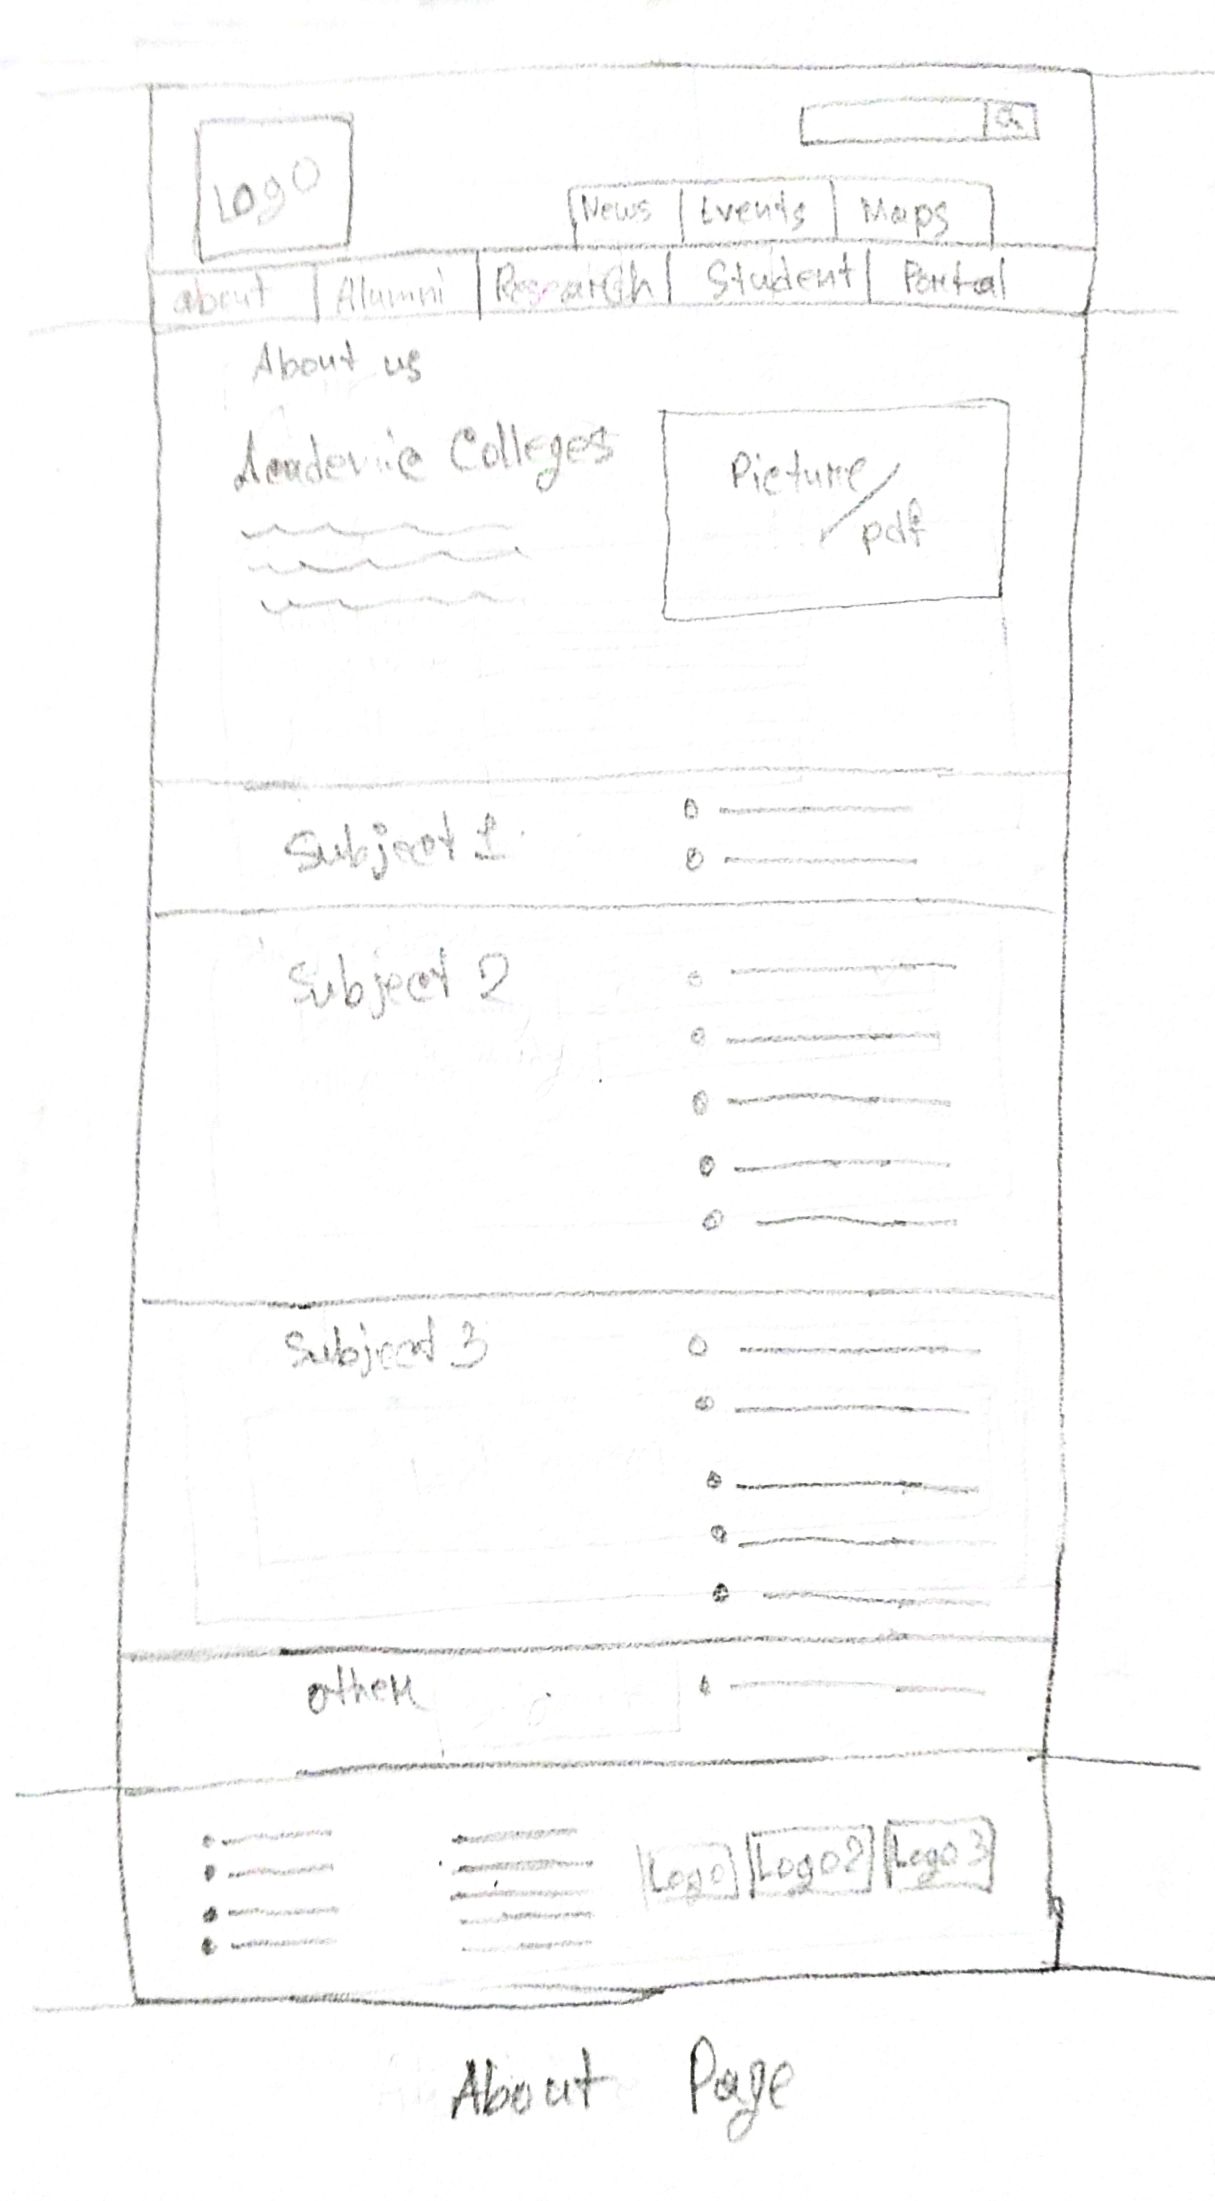 Logo
News Events Maps
about Alumni Research Student Portal
About us
Academic Colleges
Picture/
pdf
Subject 1
Subject 2
Subject 3
other
Logo Logo2 Logo 3
About Page